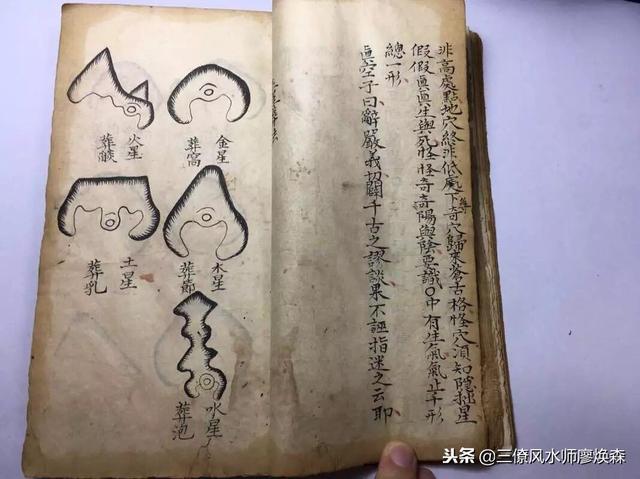 非高處點地穴終非低處下奇穴歸來合古格怪穴須知隱拙星
假假眞眞生與死怪怪奇奇陽與陰要識〇中有生氣氣止千形
總一形
眞空子曰辭嚴義切闢千古之謬談果不誣指迷之云耶
金星
葬窩
火星
葬燄
木星
葬節
土星
葬乳
水星
葬泡
头条 @三僚风水师廖焕森